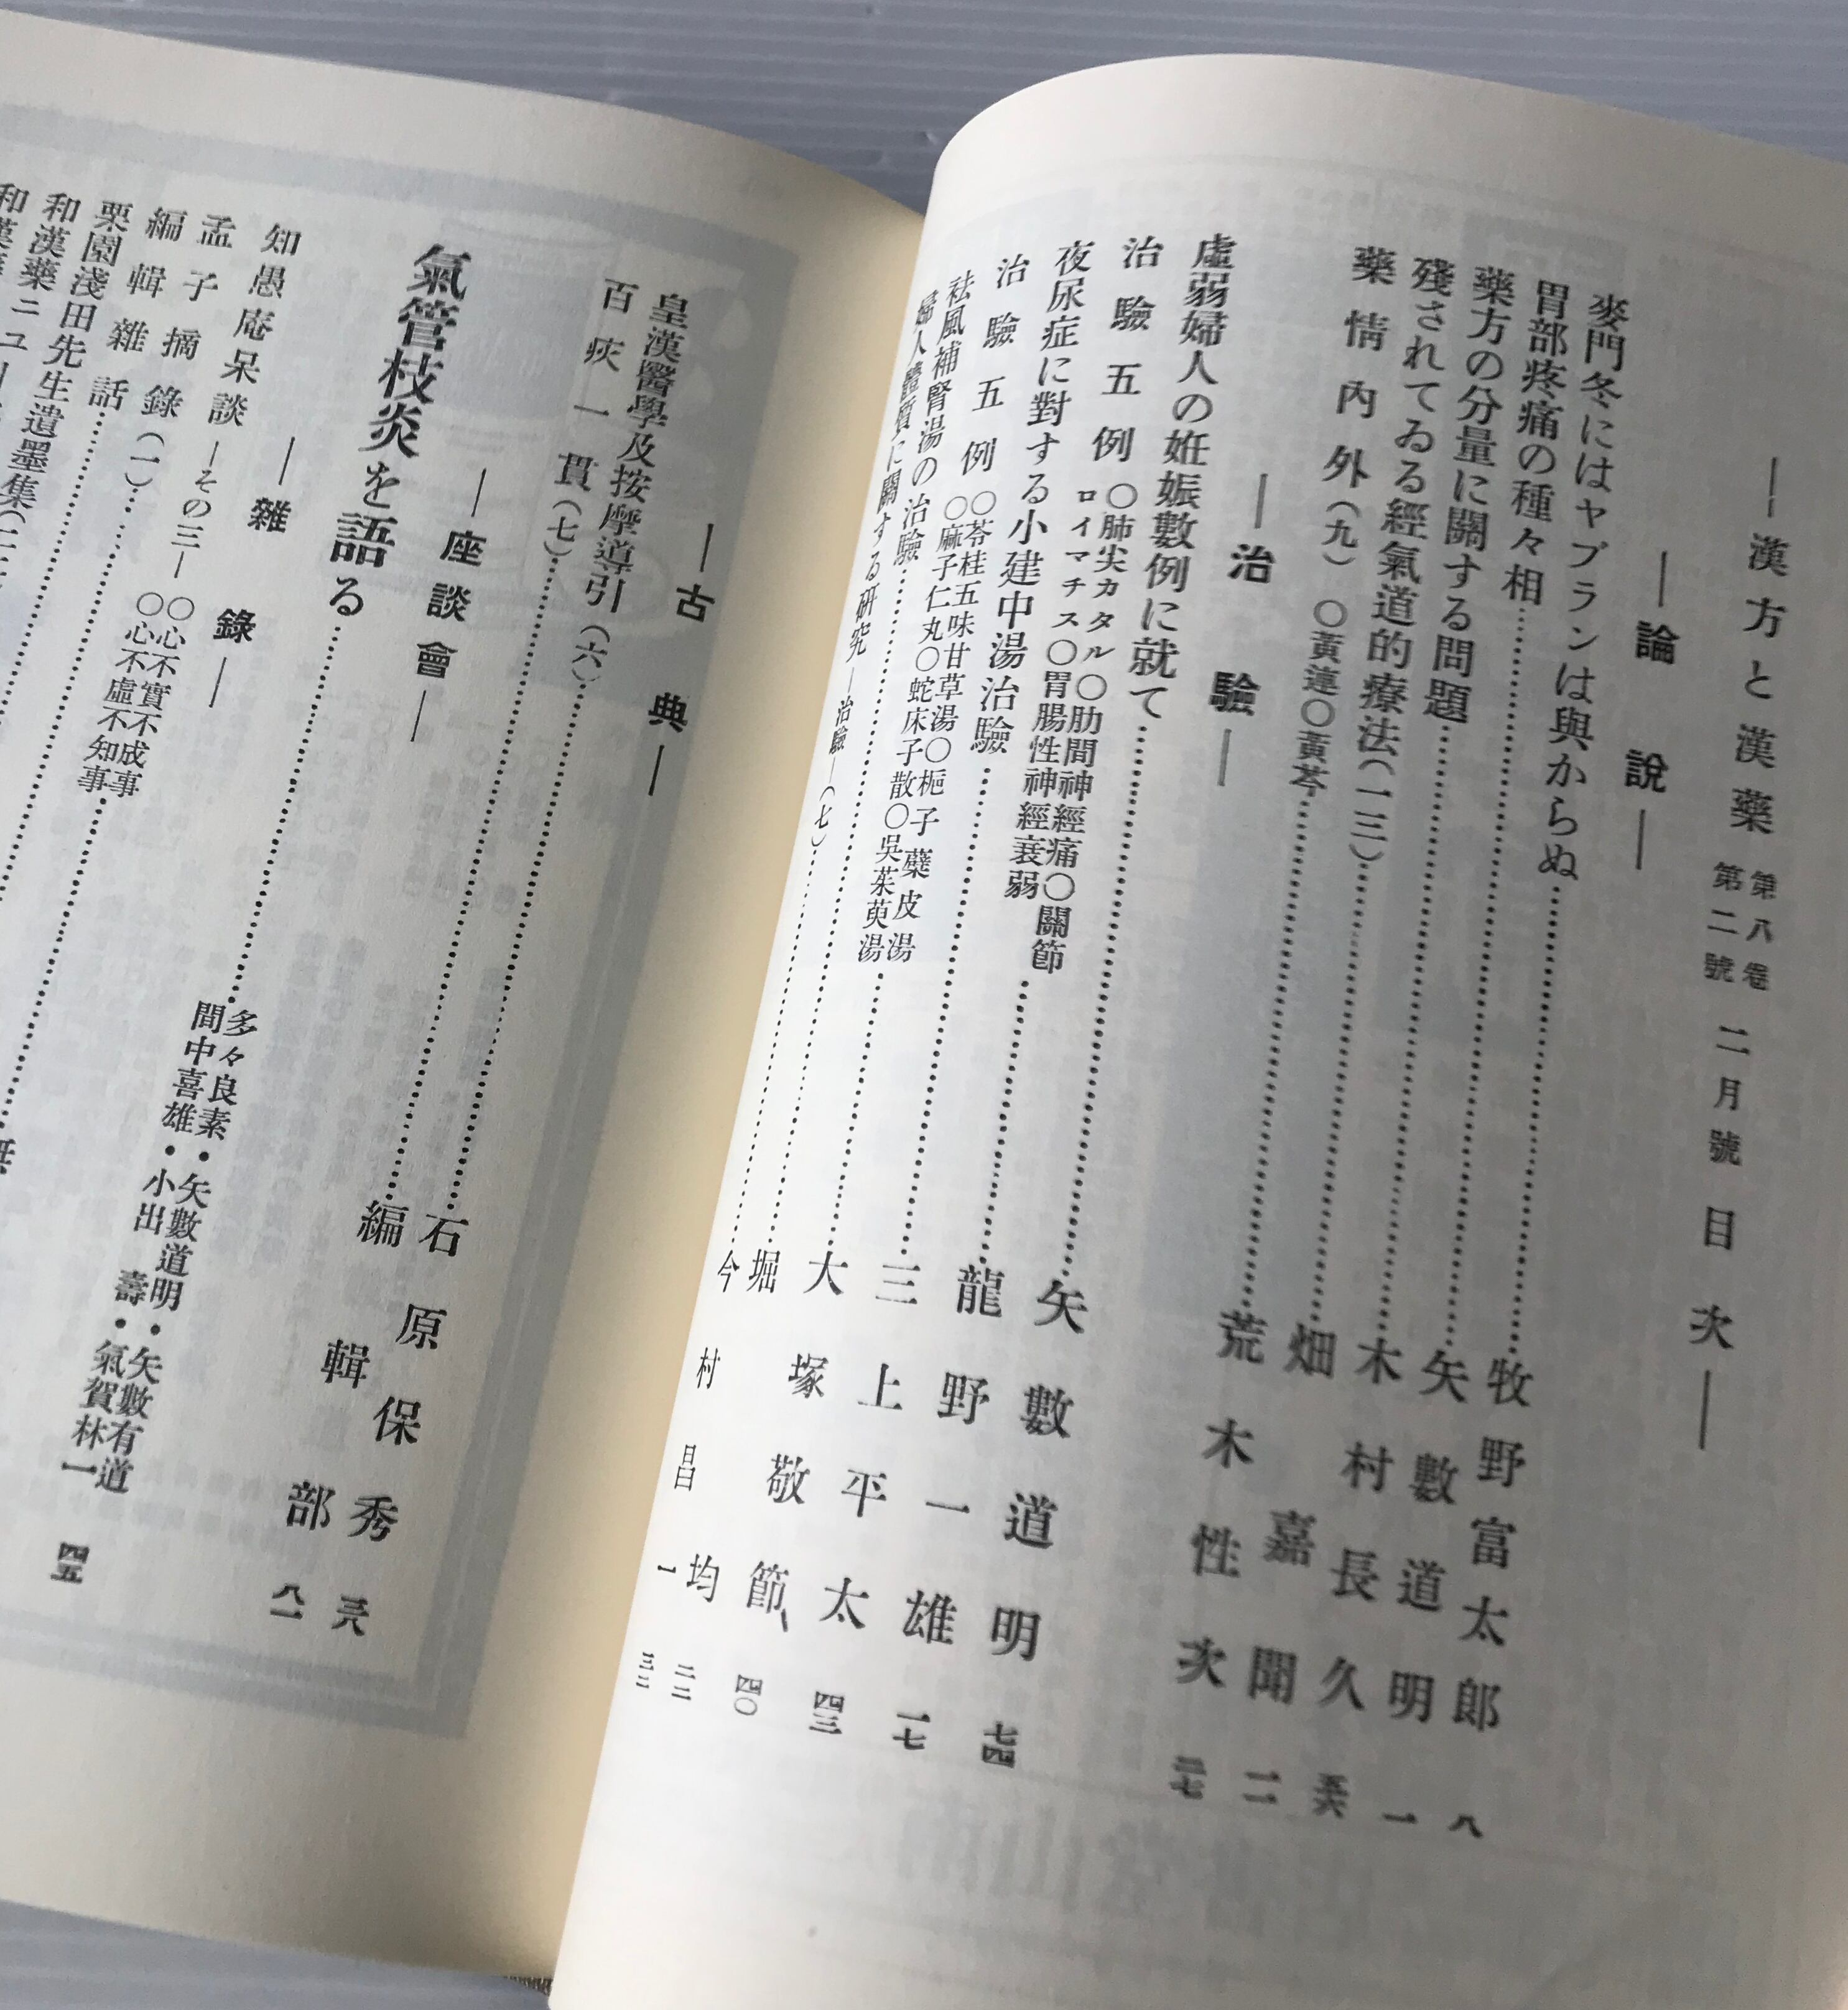 ―漢方と漢藥 第八卷第二號 二月號 目次―
―論說―
麥門冬にはヤブランは與からぬ……牧野富太郎 八
胃部疼痛の種々相……矢數道明 一
藥方の分量に關する問題……木村長久
殘されてゐる經氣道的療法(一三)……畑嘉聞 一二
藥情內外(九) 〇黃連〇黃芩……荒木性次 二七
―治驗―
虛弱婦人の姙娠數例に就て……矢數道明 七四
治驗五例 〇肺尖カタル〇肋間神經痛〇關節ロイマチス〇胃腸性神經衰弱……龍野一雄 一七
夜尿症に對する小建中湯治驗……三上平太 四三
治驗五例 〇苓桂五味甘草湯〇梔子蘗皮湯〇麻子仁丸〇蛇床子散〇吳茱萸湯……大塚敬節 四〇
袪風補腎湯の治驗……堀均 二二
婦人體質に關する研究―治驗―(七)……今村昌一 三二
―古典―
皇漢醫學及按摩導引(六)……石原保秀
百疢一貫(七)……編輯部 八一
―座談會―
氣管枝炎を語る……多々良素・矢數道明・矢數有道 間中喜雄・小出壽・氣賀林一 四五
―雜錄―
知愚庵呆談―その三― 〇心不實不成事〇心不虛不知事
孟子摘錄(一)
編輯雜話
栗園淺田先生遺墨集
和漢藥ニュ